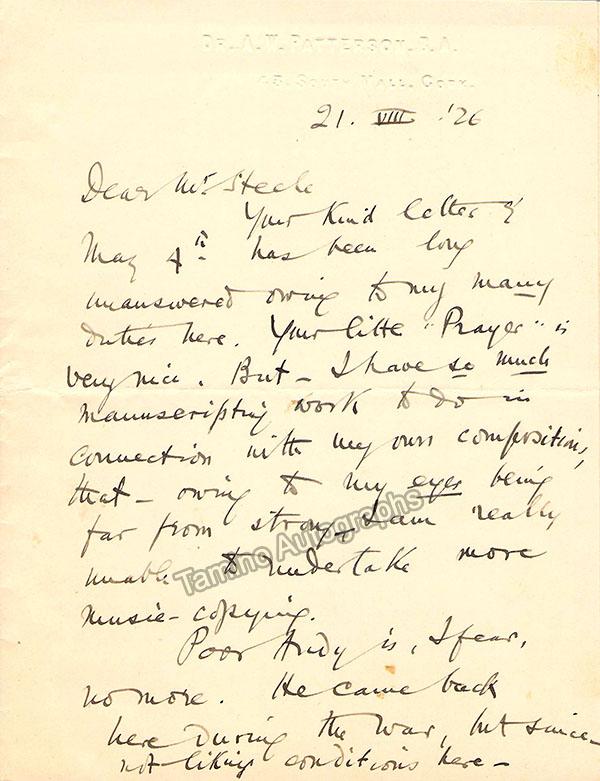 DR. A. W. PATTERSON, B.A.
43, SOUTH MALL, CORK.
21. VIII. '26
Dear Mr. Steele
Your kind letter of
May 4th has been long
unanswered owing to my many
duties here. Your little "Prayer" is
very nice. But - I have so much
manuscripting work to do in
connection with my own compositions,
that - owing to my eyes being
far from strong - I am really
unable to undertake more
music-copying.
Poor Andy is, I fear,
no more. He came back
here during the war, but since -
not liking conditions here -
Tamino Autographs